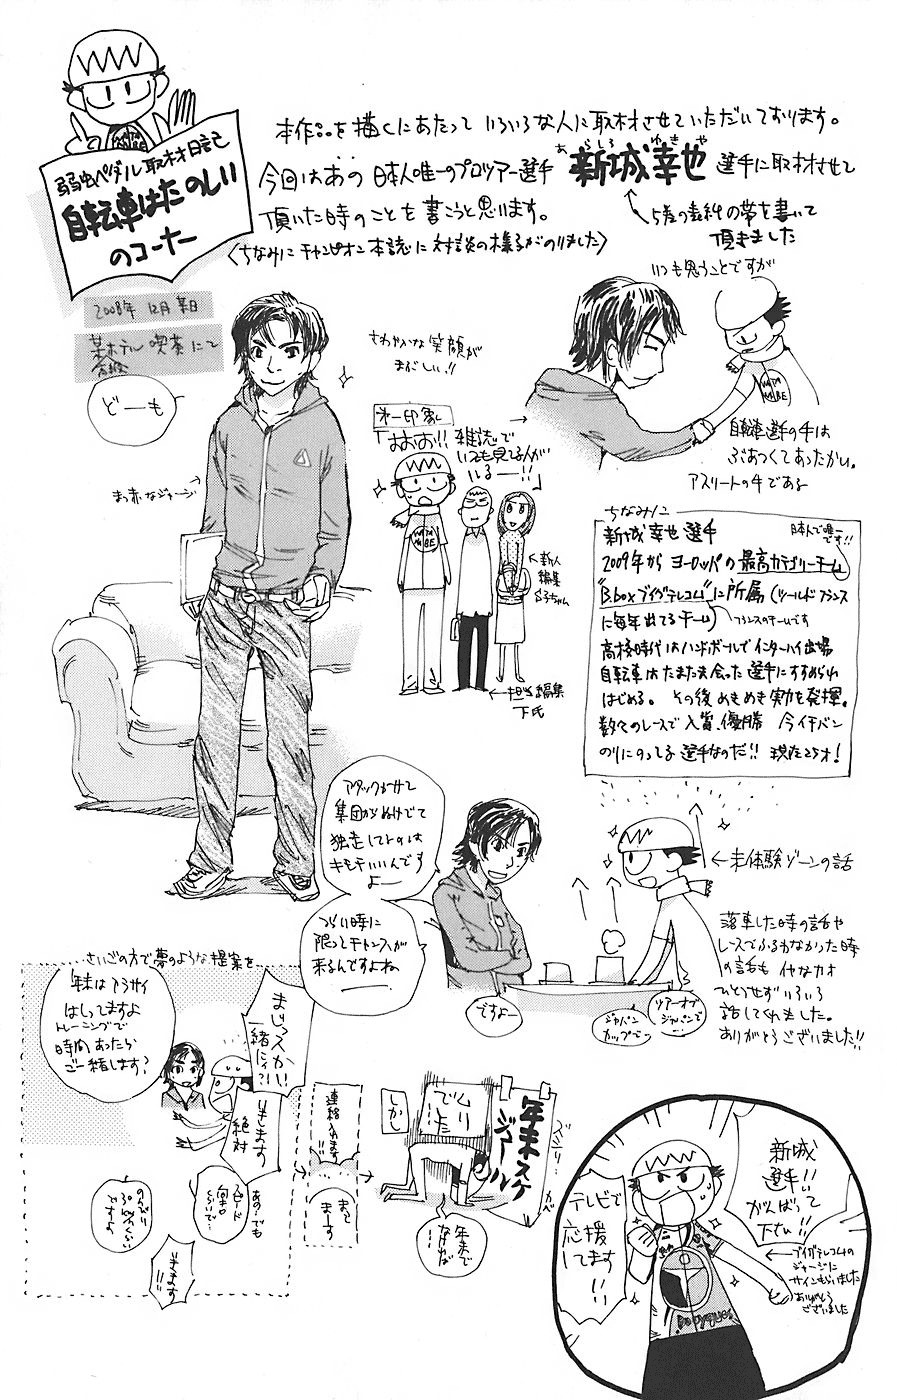 弱虫ペダル取材日記
自転車はたのしい
のコーナー
本作品を描くにあたって いろいろな人に取材させていただいております。
今回はあの 日本人唯一のプロツアー選手 新城幸也 選手に取材させて
あらしろ ゆきや
頂いた時のことを書こうと思います。
〈ちなみに チャンピオン本誌に 対談の様子がのりました〉
5巻の表紙の帯を書いて
頂きました
2008年 12月 某日
某ホテル 喫茶にて
どーも
さわやかな笑顔が
まぶしい!!
まっ赤なジャージ
第一印象
「おおお!! 雑誌で
いつも見てる人が
いるー!!」
新人
編集
担当編集
下氏
いつも思うことですが
自転車選手の手は
ぶあつくてあったかい。
アスリートの手である
ちなみに
新城 幸也 選手
日本人で唯一
です!!
2009年から ヨーロッパの 最高カテゴリーチーム
"Bboxブイグテレコム"に所属 (ツールドフランス
に毎年出てるチーム)
フランスのチームです
高校時代はハンドボールでインターハイ出場
自転車はたまたま会った選手にすすめられ
はじめる。 その後 めきめき 実力を発揮。
数々のレースで 入賞、優勝 今イチバン
のりにのってる選手なのだ!! 現在25才!
アタックかけて
集団からぬけでて
独走してトのは
キモチいいんです
よー
つらい時に
限ってチャンスが
来るんですよね
ー
ですよー
ジャパン
カップでー
ツアーオブ
ジャパンでー
←未体験ゾーンの話
落車した時の話や
レースでふるわなかった時
の話も イヤなカオ
ひとつせず いろいろ
話してくれました。
ありがとうございました!!
さいごの方で夢のような提案を
年末はアラサイ
はしってますよ
トレーニングで
時間あったら
ご一緒します?
まじっスかい
一緒に!?
いきます
絶対
あ、でも
スピード
のんびり
30kmくらい
ですよ
いきます
!!
連絡入れます
!!
まって
まーす
しかし
ムリ
でした
年末スケ
ジュール
年末で
ビッシリ
新城
選手!!
がんばって
下さい!!
テレビで
応援
してます
!!
ブイグテレコムの
ジャージに
サインもらいました
ありがとう
ございました